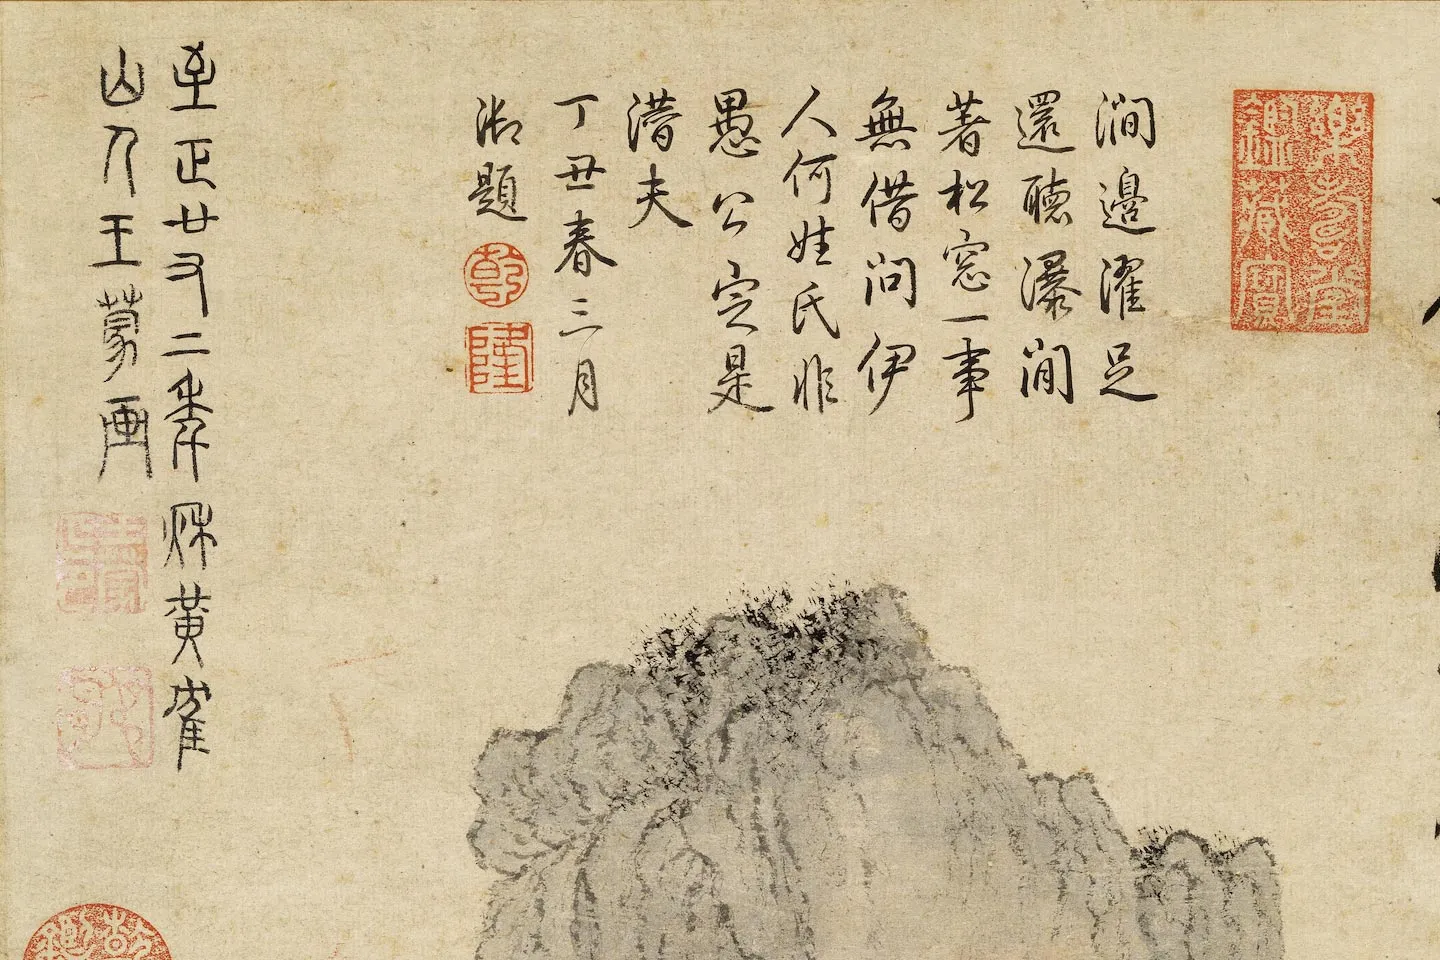 樂壽堂
鑑藏寶
澗邊濯足
還聽瀑閒
著松窓一事
無借問伊
人何姓氏非
愚公定是
潛夫
丁丑春三月
御題
乾
隆
至正廿又二年秌黃隺
山人王蒙畫